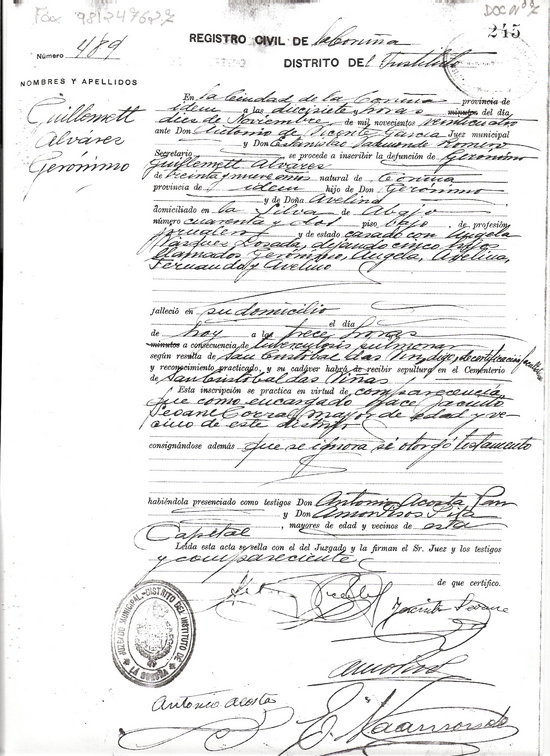 Fax 981249627
DOC Nº 7
245
Número 489
REGISTRO CIVIL DE La Coruña
DISTRITO DEL Instituto
NOMBRES Y APELLIDOS
Guillemett
Alvárez
Gerónimo
En la Ciudad de la Coruña provincia de
idem a las diecisiete horas minutos del día
diez de Noviembre de mil novecientos veintiocho
ante Don Antonio de Vicente Garcia Juez municipal
y Don Estanislao Romero
Secretario se procede a inscribir la defunción de Gerónimo
Guillemett Alvares
de treinta y nueve años natural de Coruña
provincia de idem hijo de Don Gerónimo
y de Doña Avelina
domiciliado en la Silva de Abajo
número cuarenta y dos piso bajo de profesión
y de estado casado con Angela
Vazquez Posada, dejando cinco hijos
llamados Gerónimo, Angela, Avelina,
Fernanda y Avelino
falleció en su domicilio
el día
de hoy a las trece horas
minutos a consecuencia de tuberculosis pulmonar
según resulta de certificación facultativa
y reconocimiento practicado, y su cadáver habrá de recibir sepultura en el Cementerio
de San Cristobal das Viñas
Esta inscripción se practica en virtud de comparecencia
que como encargado hace Jacinto
Seoane Corral, mayor de edad y ve-
cino de este distrito
consignándose además que se ignora si otorgó testamento
habiéndola presenciado como testigos Don Antonio Acosta
y Don Amor Pita
, mayores de edad y vecinos de esta
Capital
Leída esta acta se sella con el del Juzgado y la firman el Sr. Juez y los testigos
y compareciente
de que certifico.
Jacinto Seoane
JUZGADO MUNICIPAL-DISTRITO DEL INSTITUTO DE LA CORUÑA
Antonio Acosta